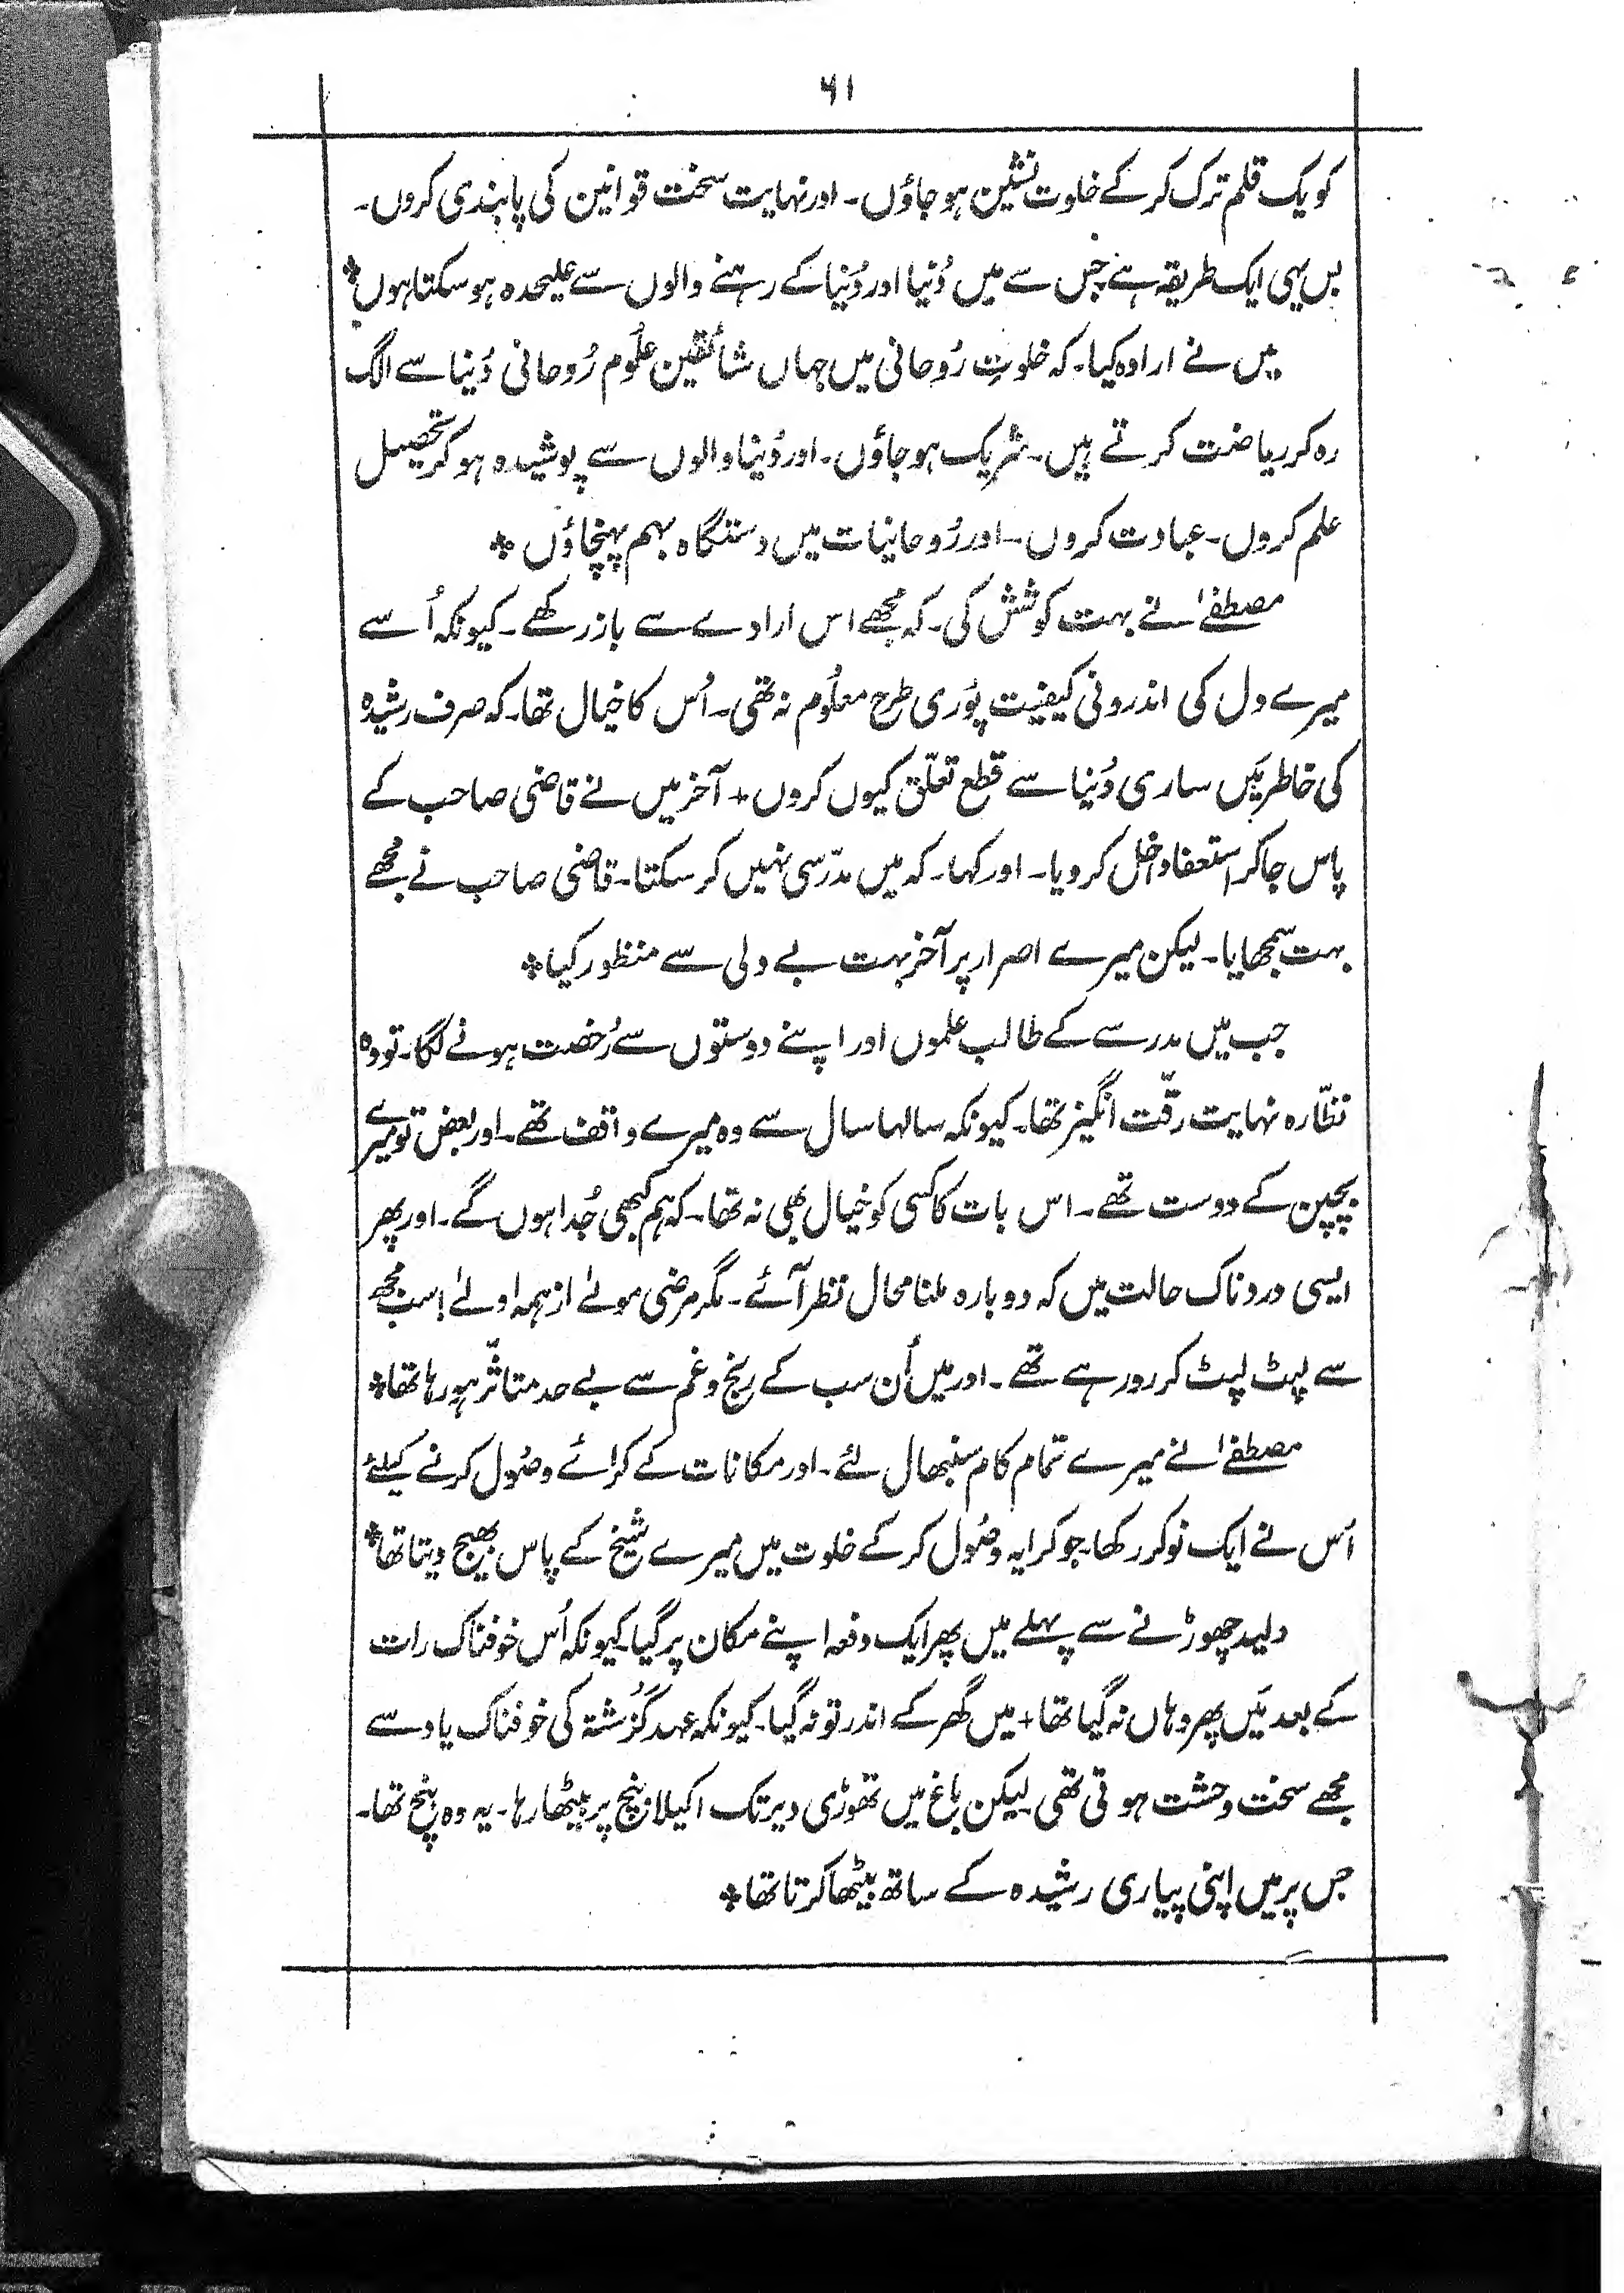 ۶۱
کو یک قلم ترک کر کے خلوت نشین ہو جاؤں۔ اور نہایت سخت قوانین کی پابندی کروں۔
بس یہی ایک طریقہ ہے جس سے میں دُنیا اور دُنیا کے رہنے والوں سے علیحدہ ہو سکتا ہوں ٭
میں نے ارادہ کیا۔ کہ خلوتِ رُوحانی میں جہاں شائقین علُوم رُوحانی دُنیا سے الگ
رہ کر ریاضت کرتے ہیں۔ شریک ہو جاؤں۔ اور دُنیا والوں سے پوشیدہ ہو کر تحصیل
علم کروں۔ عبادت کروں۔ اور رُوحانیات میں دستگاہ بہم پہنچاؤں ٭
مصطفےٰ نے بہت کوشش کی۔ کہ مجھے اس ارادے سے باز رکھے۔ کیونکہ اُسے
میرے دل کی اندرونی کیفیت پوُری طرح معلُوم نہ تھی۔ اُس کا خیال تھا۔ کہ صرف رشیدہ
کی خاطر میَں ساری دُنیا سے قطع تعلّق کیوں کروں + آخر میں نے قاضی صاحب کے
پاس جا کر استعفا داخل کر دیا۔ اور کہا۔ کہ میں مدرّسی نہیں کر سکتا۔ قاضی صاحب نے مجُھے
بہت سمجھایا۔ لیکن میرے اصرار پر آخر بہت بے دلی سے منظور کیا ٭
جب میں مدرسے کے طالب علموں اور اپنے دوستوں سے رُخصت ہونے لگا۔ تو وہ
نظّارہ نہایت رقّت انگیز تھا۔ کیونکہ سالہا سال سے وہ میرے واقف تھے۔ اور بعض تو میرے
بچپن کے دوست تھے۔ اس بات کا کسی کو خیال بھی نہ تھا۔ کہ ہم کبھی جُدا ہوں گے۔ اور پھر
ایسی دردناک حالت میں کہ دوبارہ ملنا محال نظر آئے۔ مگر مرضی مولےٰ از ہمہ اولےٰ! سب مجھ
سے لپٹ لپٹ کر رو رہے تھے۔ اور میں اُن سب کے رنج و غم سے بے حد متاثّر ہو رہا تھا ٭
مصطفےٰ نے میرے تمام کام سنبھال لئے۔ اور مکانات کے کرائے وصُول کرنے کیلئے
اُس نے ایک نوکر رکھا۔ جو کرایہ وصُول کر کے خلوت میں میرے شیخ کے پاس بھیج دیتا تھا ٭
دلید چھوڑنے سے پہلے میں پھر ایک دفعہ اپنے مکان پر گیا۔ کیونکہ اُس خوفناک رات
کے بعد میَں پھر وہاں نہ گیا تھا + میں گھر کے اندر تو نہ گیا۔ کیونکہ عہد گزُشتہ کی خوفناک یاد سے
مجھے سخت وحشت ہوتی تھی لیکن باغ میں تھوڑی دیر تک اکیلا بنچ پر بیٹھا رہا۔ یہ وہ بنچ تھا۔
جس پر میں اپنی پیاری رشیدہ کے ساتھ بیٹھا کرتا تھا ٭